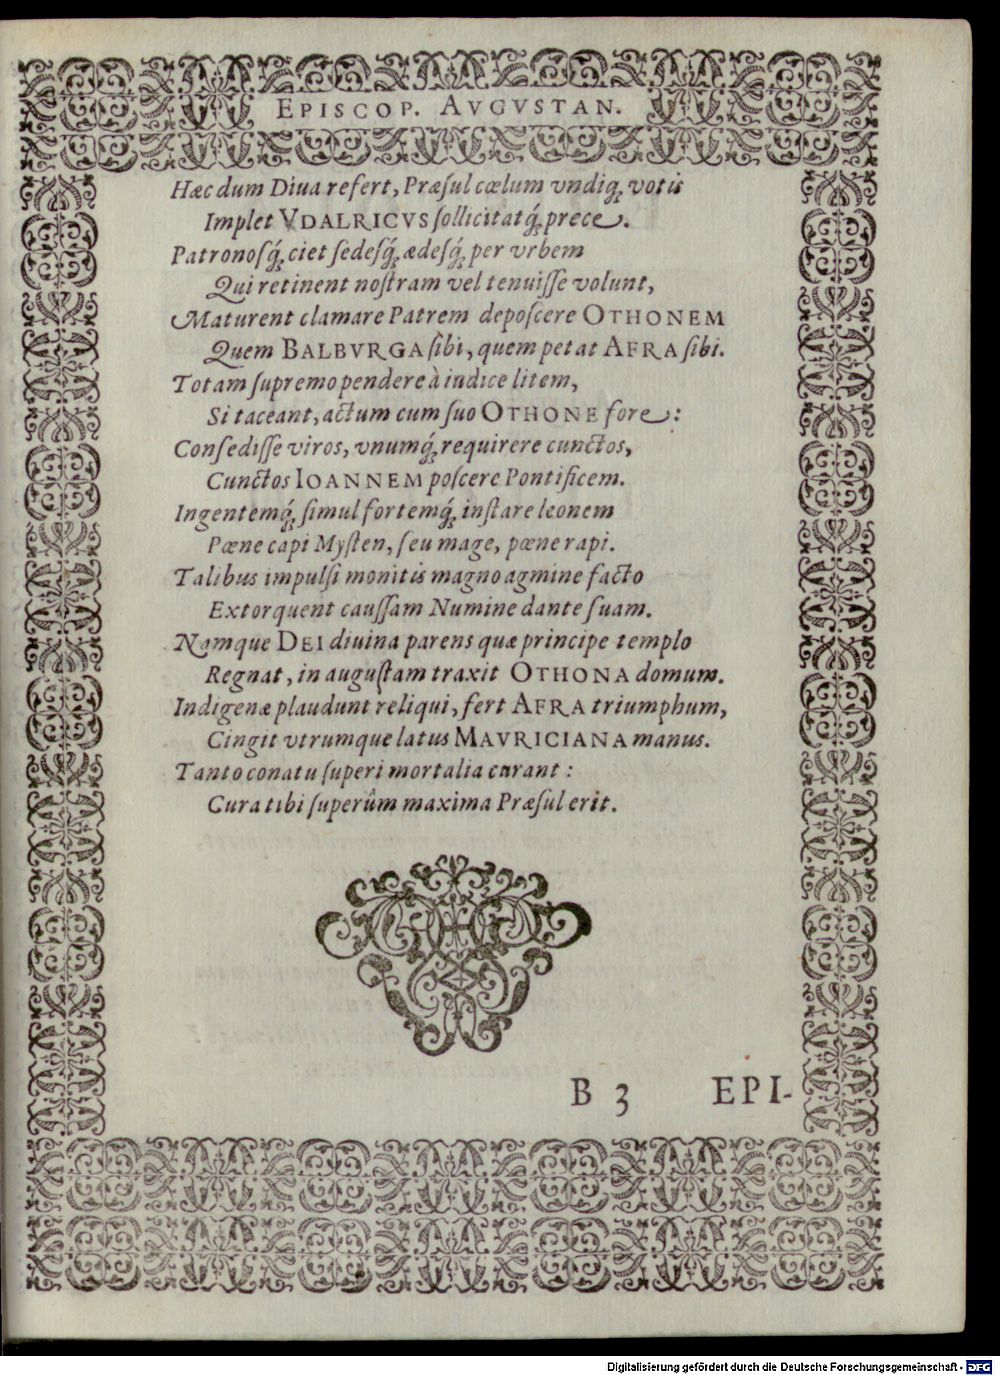 EPISCOP. AVGVSTAN.
Hæc dum Diua refert, Præsul cœlum vndiq́; votis
Implet VDALRICVS sollicitatq́; prece.
Patronosq́; ciet sedesq́; ædesq́; per vrbem
Qui retinent nostram vel tenuisse volunt,
Maturent clamare Patrem deposcere OTHONEM
Quem BALBVRGA sibi, quem petat AFRA sibi.
Totam supremo pendere à iudice litem,
Si taceant, actum cum suo OTHONE fore:
Consedisse viros, vnumq́; requirere cunctos,
Cunctos IOANNEM poscere Pontificem.
Ingentemq́; simul fortemq́; instare leonem
Pœne capi Mysten, seu mage, pœne rapi.
Talibus impulsi monitis magno agmine facto
Extorquent caussam Numine dante suam.
Namque DEI diuina parens quæ principe templo
Regnat, in augustam traxit OTHONA domum.
Indigenæ plaudunt reliqui, fert AFRA triumphum,
Cingit vtrumque latus MAVRICIANA manus.
Tanto conatu superi mortalia curant:
Cura tibi superûm maxima Præsul erit.
B 3 EPI-
Digitalisierung gefördert durch die Deutsche Forschungsgemeinschaft - DFG